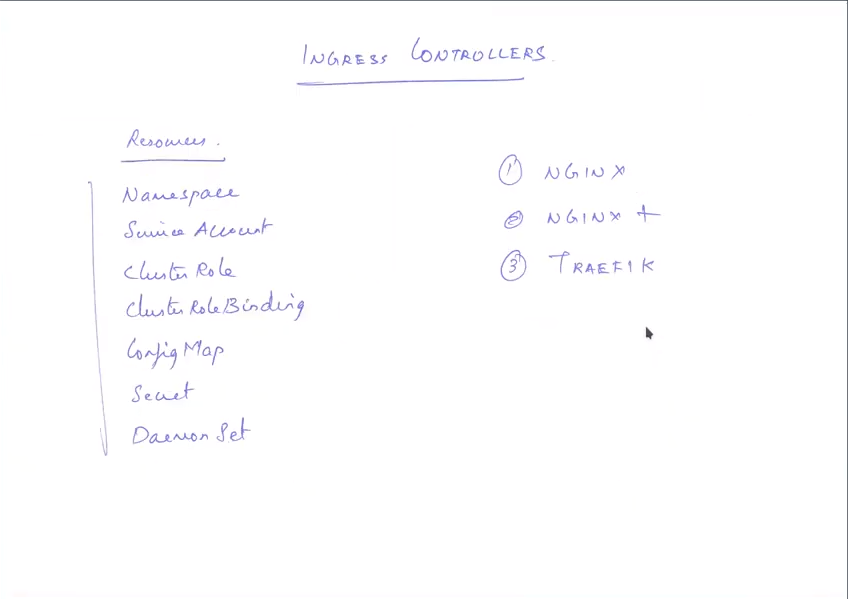 INGRESS CONTROLLERS.
Resources.
Namespace
Service Account
Cluster Role
Cluster Role Binding
Config Map
Secret
Daemon Set
1 NGINX
2 NGINX +
3 TRAEFIK